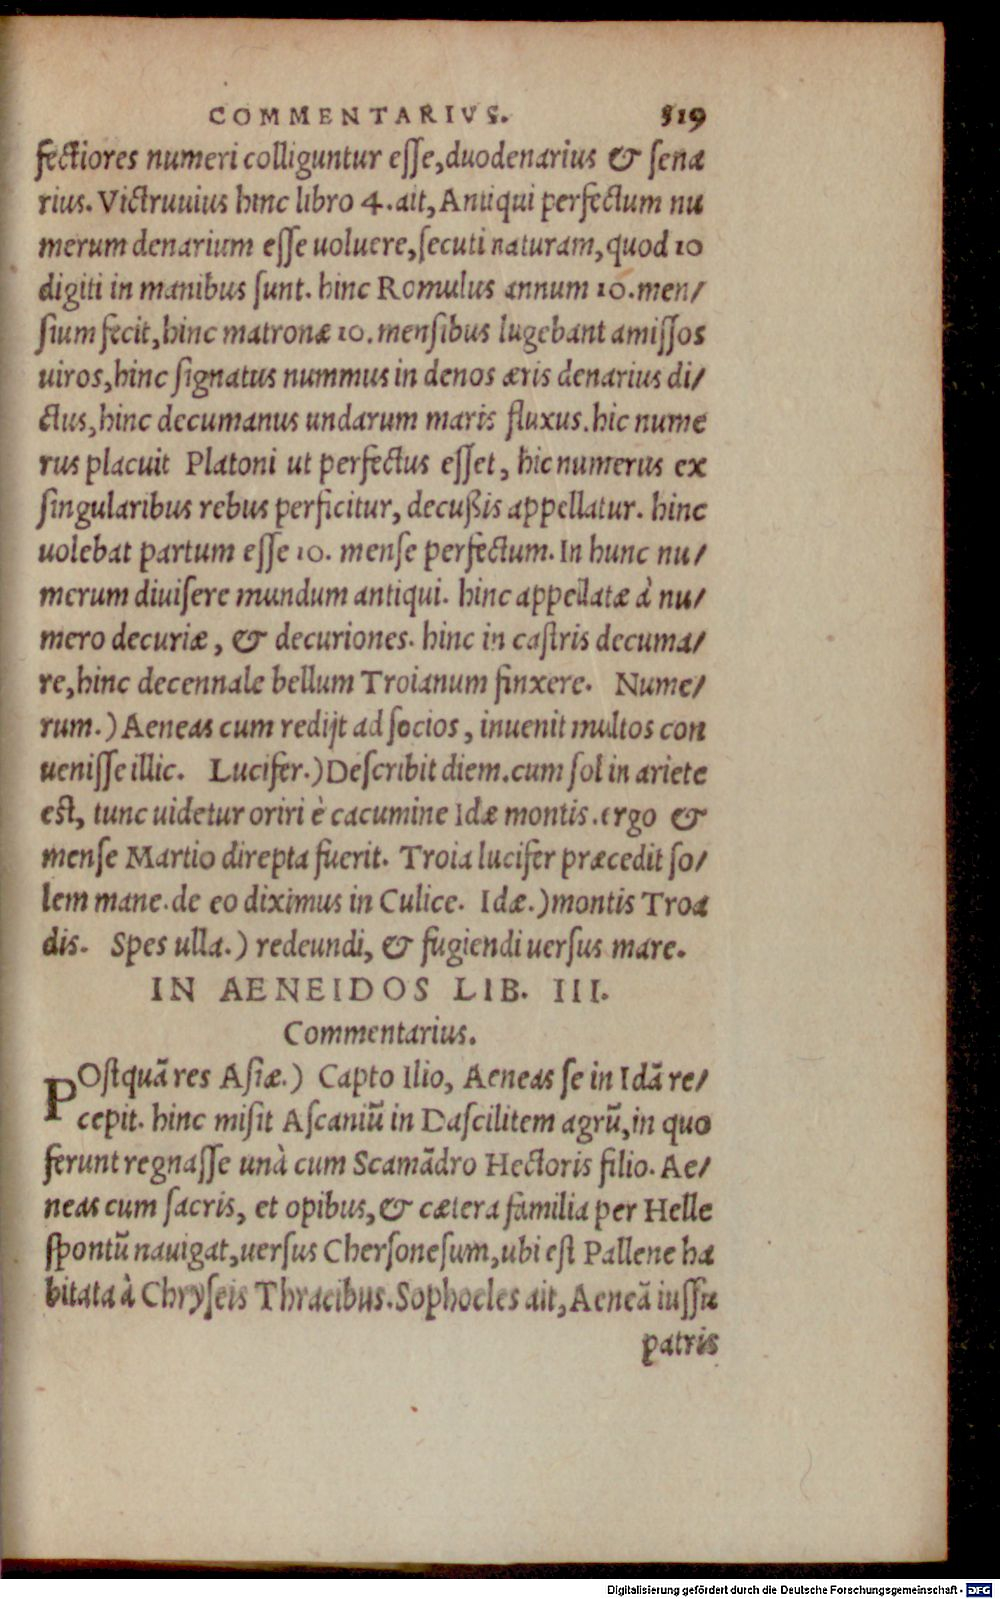 COMMENTARIVS. 519
fectiores numeri colliguntur esse, duodenarius & sena
rius. Victruuius hinc libro 4. ait, Antiqui perfectum nu
merum denarium esse uoluere, secuti naturam, quod 10
digiti in manibus sunt. hinc Romulus annum 10. men/
sium fecit, hinc matronæ 10. mensibus lugebant amissos
uiros, hinc signatus nummus in denos æris denarius di/
ctus, hinc decumanus undarum maris fluxus. hic nume
rus placuit Platoni ut perfectus esset, hic numerus ex
singularibus rebus perficitur, decußis appellatur. hinc
uolebat partum esse 10. mense perfectum. In hunc nu/
merum diuisere mundum antiqui. hinc appellatæ à nu/
mero decuriæ, & decuriones. hinc in castris decuma/
re, hinc decennale bellum Troianum finxere. Nume/
rum.) Aeneas cum redijt ad socios, inuenit multos con
uenisse illic. Lucifer.) Describit diem. cum sol in ariete
est, tunc uidetur oriri è cacumine Idæ montis. ergo &
mense Martio direpta fuerit. Troia lucifer præcedit so/
lem mane. de eo diximus in Culice. Idæ.) montis Troa
dis. Spes ulla.) redeundi, & fugiendi uersus mare.
IN AENEIDOS LIB. III.
Commentarius.
POstquã res Asiæ.) Capto Ilio, Aeneas se in Idã re/
cepit. hinc misit Ascaniũ in Dascilitem agrũ, in quo
ferunt regnasse unà cum Scamãdro Hectoris filio. Ae/
neas cum sacris, et opibus, & cætera familia per Helle
spontũ nauigat, uersus Chersonesum, ubi est Pallene ha
bitata à Chryseis Thracibus. Sophocles ait, Aeneã iussu
patris
Digitalisierung gefördert durch die Deutsche Forschungsgemeinschaft - DFG